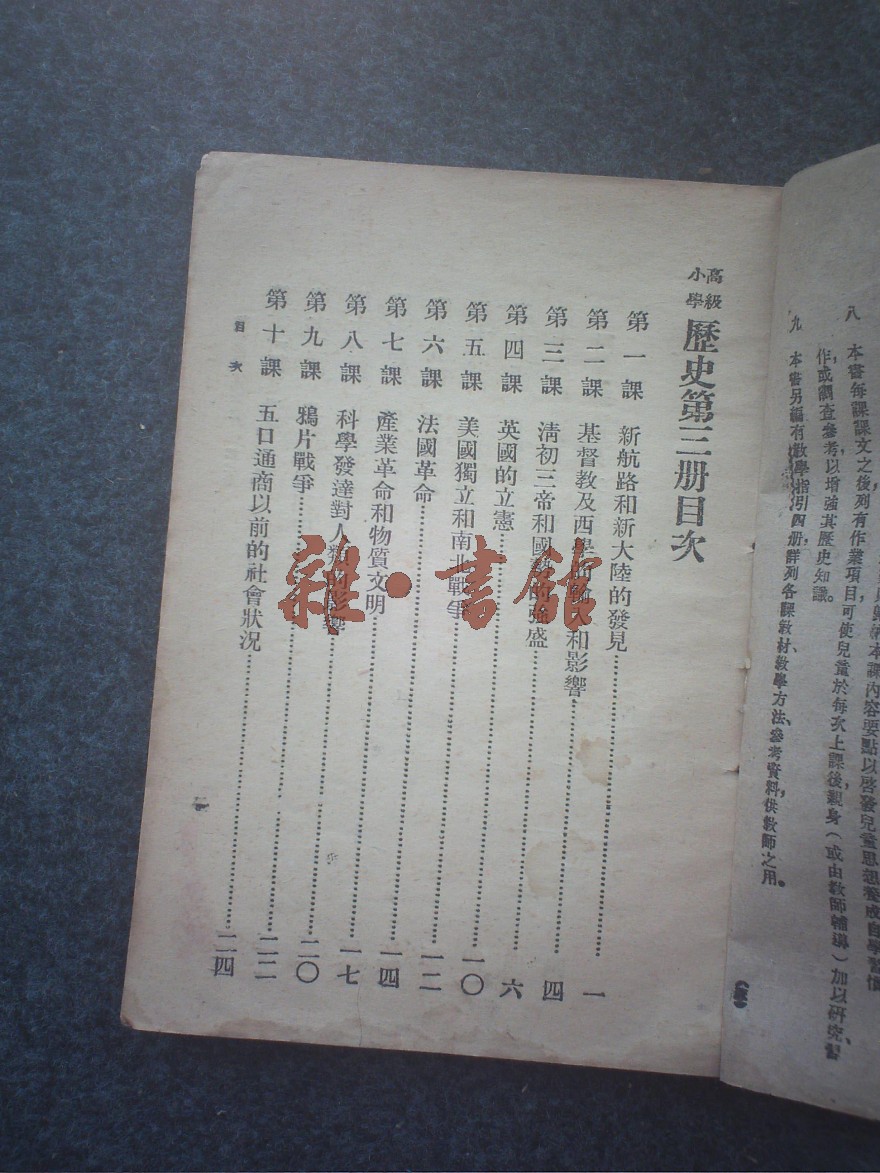 歸納本課內容要點以啓發兒童思想養成自學習慣
八 本書每課課文之後列有作業項目，可使兒童於每次上課後親身（或由教師輔導）加以研究、習
作，或調查參考，以增強其歷史知識。
九 本書另編有教學指引四册，詳列各課教材、教學方法、參考資料，供教師之用。
高級小學 歷史第三册目次
第一課 新航路和新大陸的發見……………一
第二課 基督教及西學的輸入和影響……………四
第三課 清初三帝和國勢的強盛……………六
第四課 英國的立憲……………一〇
第五課 美國獨立和南北戰爭……………一二
第六課 法國革命……………一四
第七課 產業革命和物質文明……………一七
第八課 科學發達對人類的影響……………二〇
第九課 鴉片戰爭……………二二
第十課 五口通商以前的社會狀況……………二四
目次
一
雜·書館